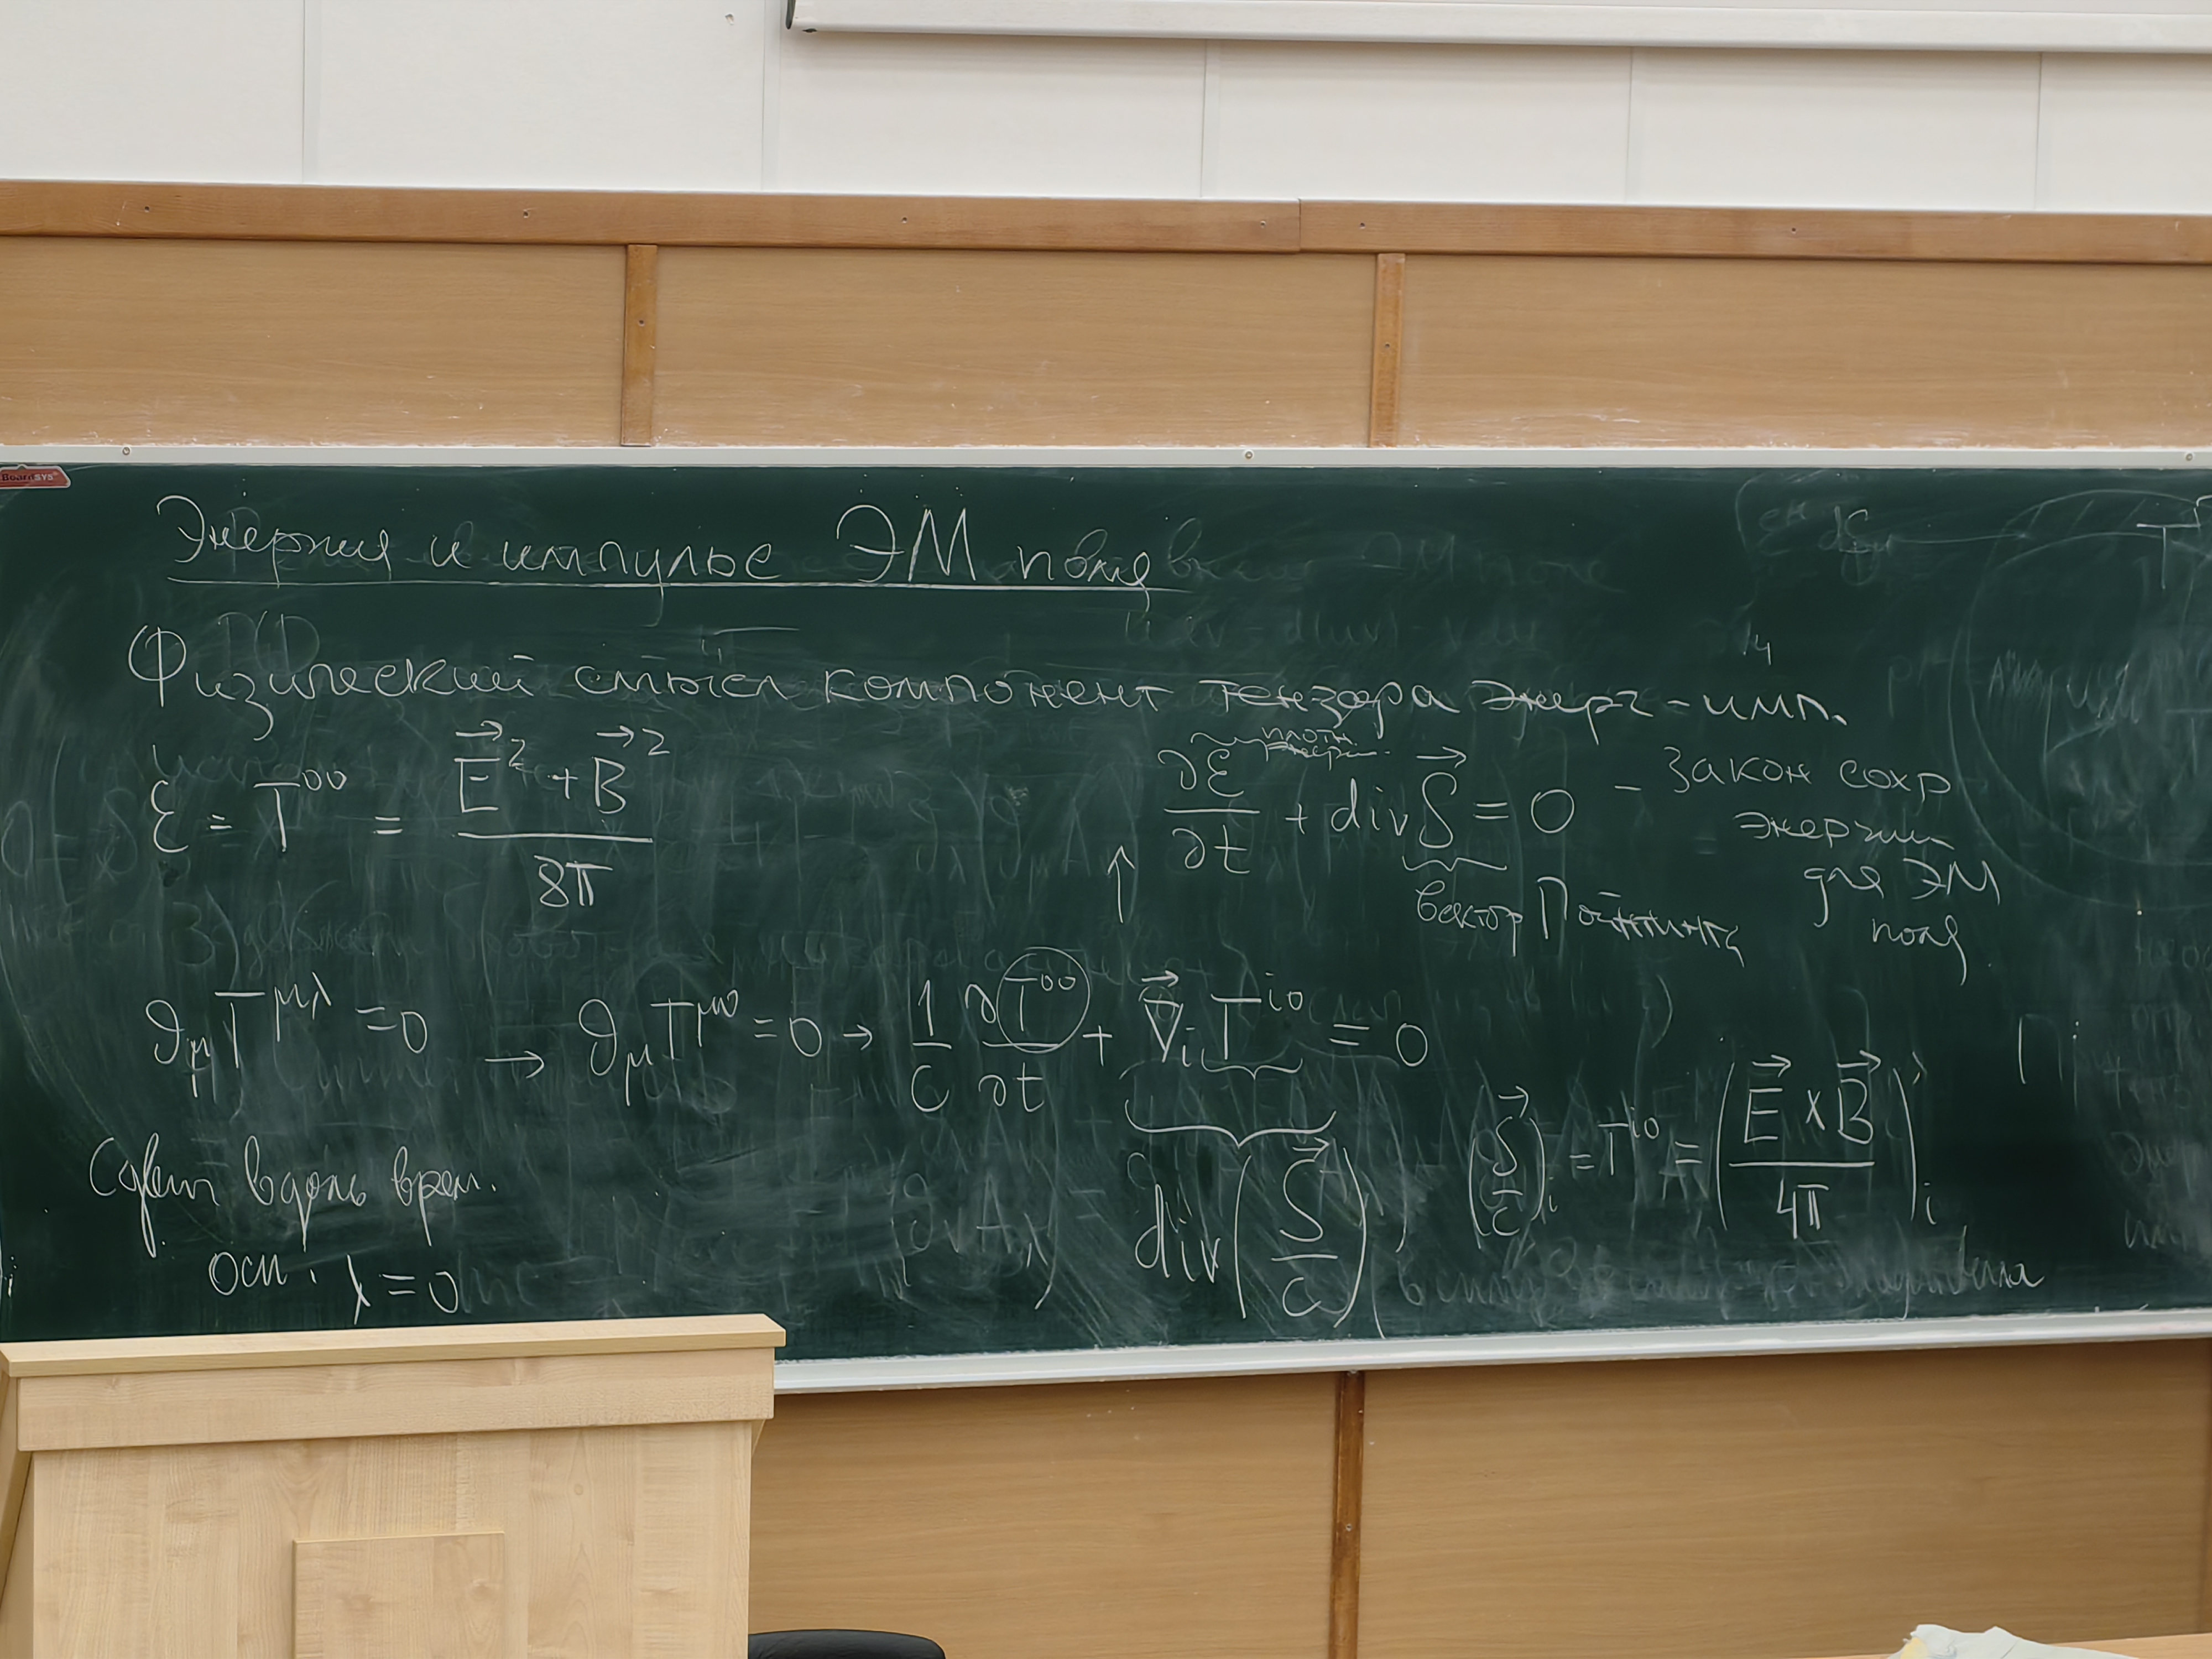 BoardSYS
Энергия и импульс ЭМ поля
Физический смысл компонент тензора энерг-имп.
ℰ = T⁰⁰ = (E⃗² + B⃗²) / 8π
плотн. энерги
∂ℰ/∂t + div S⃗ = 0 – закон сохр
энергии
для ЭМ
поля
вектор Пойнтинга
∂_μ T^{μλ} = 0 → ∂_μ T^{μ0} = 0 → (1/c) ∂T⁰⁰/∂t + ∇⃗_i T^{i0} = 0
div(S⃗/c), (S⃗/c)_i = T^{i0} = (E⃗ × B⃗ / 4π)_i
Сдвиг вдоль врем.
оси. λ = 0